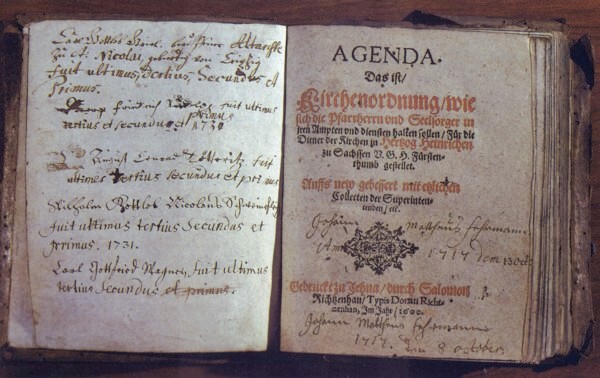 zu St. Nicolai
fuit ultimus, tertius, Secundus et
Primus.
fuit ultimus
primus
tertius et secundus et 1730
fuit
ultimus tertius secundus et primus
Wilhelm Gottlob Nicolaus
fuit ultimus tertius Secundus et
primus. 1731.
Carl Gottfried Wagner, fuit ultimus
tertius secundus et primus.
AGENDA.
Das ist/
Kirchenordnung/wie
sich die Pfarrherrn vnd Seelsorger in
jren Ampten vnd diensten halten sollen/ Für die
Diener der Kirchen in Hertzog Heinrichen
zu Sachssen V. G. H. Fürsten-
thumb gestellet.
Auffs new gebessert mit etzlichen
Collecten der Superinten-
denten/ etc.
Johann Matthäus
1717 den 8 Octo
Gedruckt zu Jehna/ durch Salomon
Richtzenhan/ Typis Donati Richt-
zenhan, Im Jahr/
Johann Mattheus
1717. den 8 october